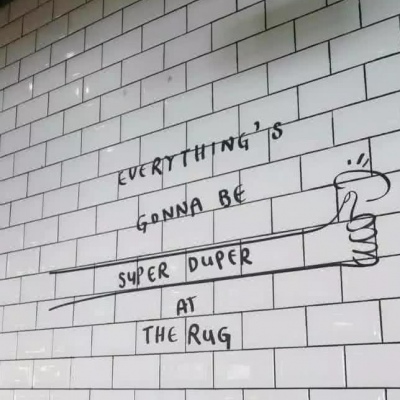 EVERYTHING'S
GONNA BE
SUPER DUPER
AT
THE RUG